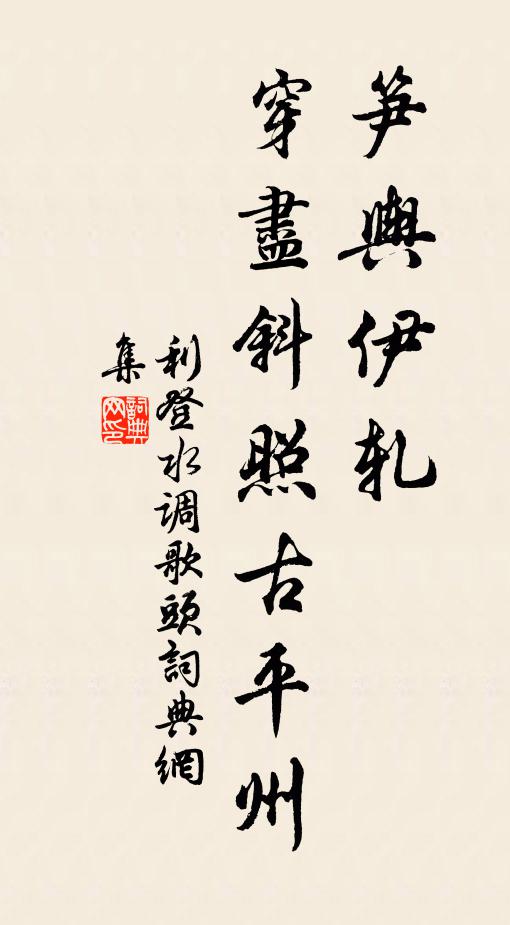 笋輿伊軋
穿盡斜照古平州
利登水调歌頭詞典網
集
詞典网印